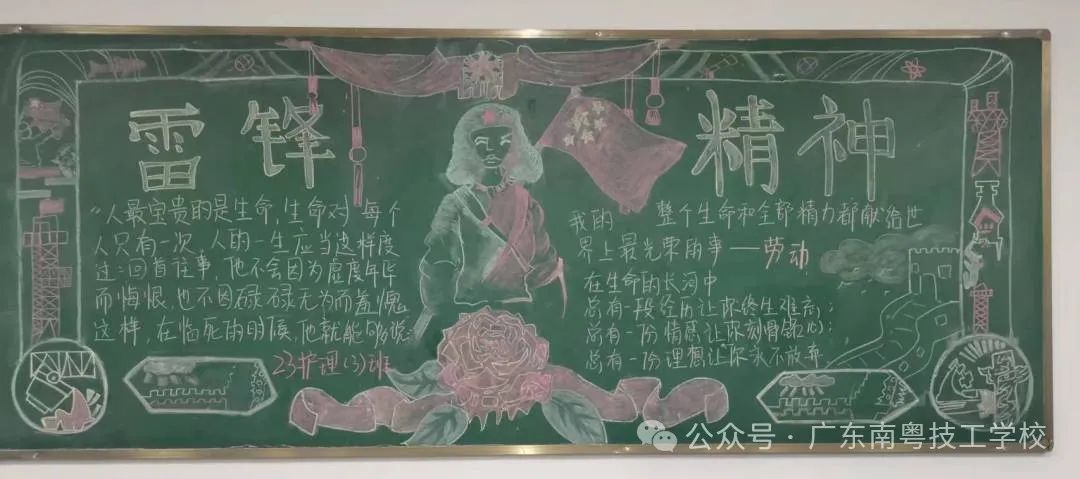 雷锋 精神
"人最宝贵的是生命,生命对每个
人只有一次,人的一生应当这样度
过:回首往事,他不会因为虚度年华
而悔恨,也不因碌碌无为而羞愧
这样,在临死的时候,他就能够说:
23护理(3)班
我的 整个生命和全部精力都献给世
界上最光荣的事——劳动
在生命的长河中
总有一段经历让你终生难忘;
总有一份情感让你刻骨铭心;
总有一份理想让你永不放弃
公众号·广东南粤技工学校